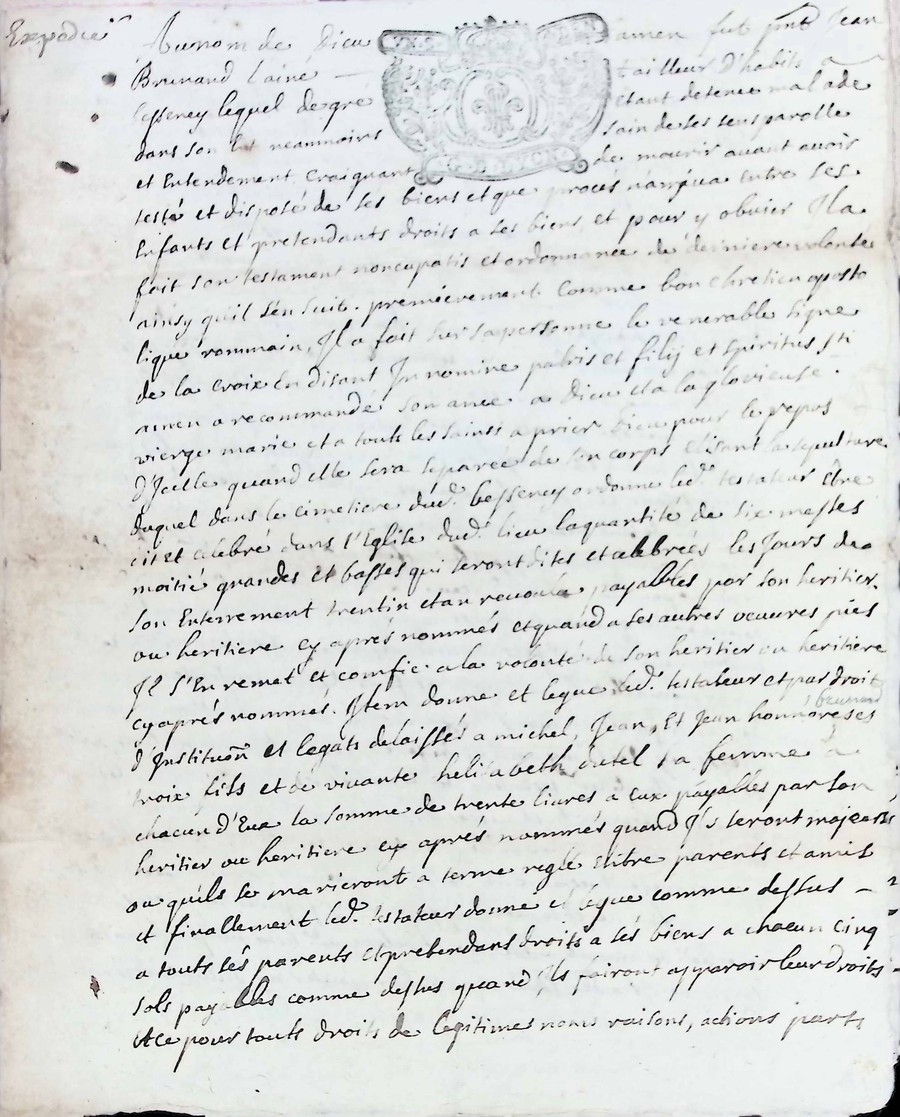 Expedié
Au nom de Dieu amen fut pnt Jean
Brunand l'ainé tailleur d'habits a
besseney lequel de gre etant detenu malade
dans son lit neammoins sain de ses sens parolle
et Entendement craignant de mourir avant avois
testé et disposé de ses biens et que procés n'arriva entre ses
Enfants et pretendants droits a ses biens, et pour y obvier Il a
fait son testament noncupatif et ordonnance de derniere volonté
ainsy qu'il s'en suit. premierement Comme bon chretien aposto
lique rommain, Il a fait sur sa personne le venerable signe
de la Croix En disant In nomine patris et filij et spiritus sti
amen a recommandé son ame a Dieu et a la glorieuse
vierge marie et a touts les saints a prier Dieu pour le repos
d'Jcelle quand elle sera separée de son corps Elisant la sepulture
duquel dans le cimetiere dud. bessenay ordonne led. testateur Etre
dit et celebré dans l'Eglise dud. lieu la quantité de six messes
moitié grandes et basses qui seront dites et celebrées les Jours de
son Enterrement trentin et an revolu payables par son heritier
ou heritiere cy aprés nommés et quand a ses autres oeuvres pies
Il s'En remet et confie a la volonté de son heritier ou heritiere
cy aprés nommés. Item donne et legue led. testateur et par droit
d'Institüon et legats delaissés a michel, Jean, Et Jean honnore ses
brunand
troix fils et de vivante helisabeth dutel sa femme a
chacun d'Eux la somme de trente livres a Eux payables par son
heritier ou heritiere cy aprés nommés quand Ils seront majeurs
ou qu'ils se marieront a terme reglé Entre parents et amis
et finallement led. testateur donne et legue comme dessus
a touts ses parents et pretendans droits a ses biens a chacun Cinq
sols payables comme dessus quand Ils fairont apparoir leur droits
et ce pour touts droits de legitimes noms raisons, actions parts